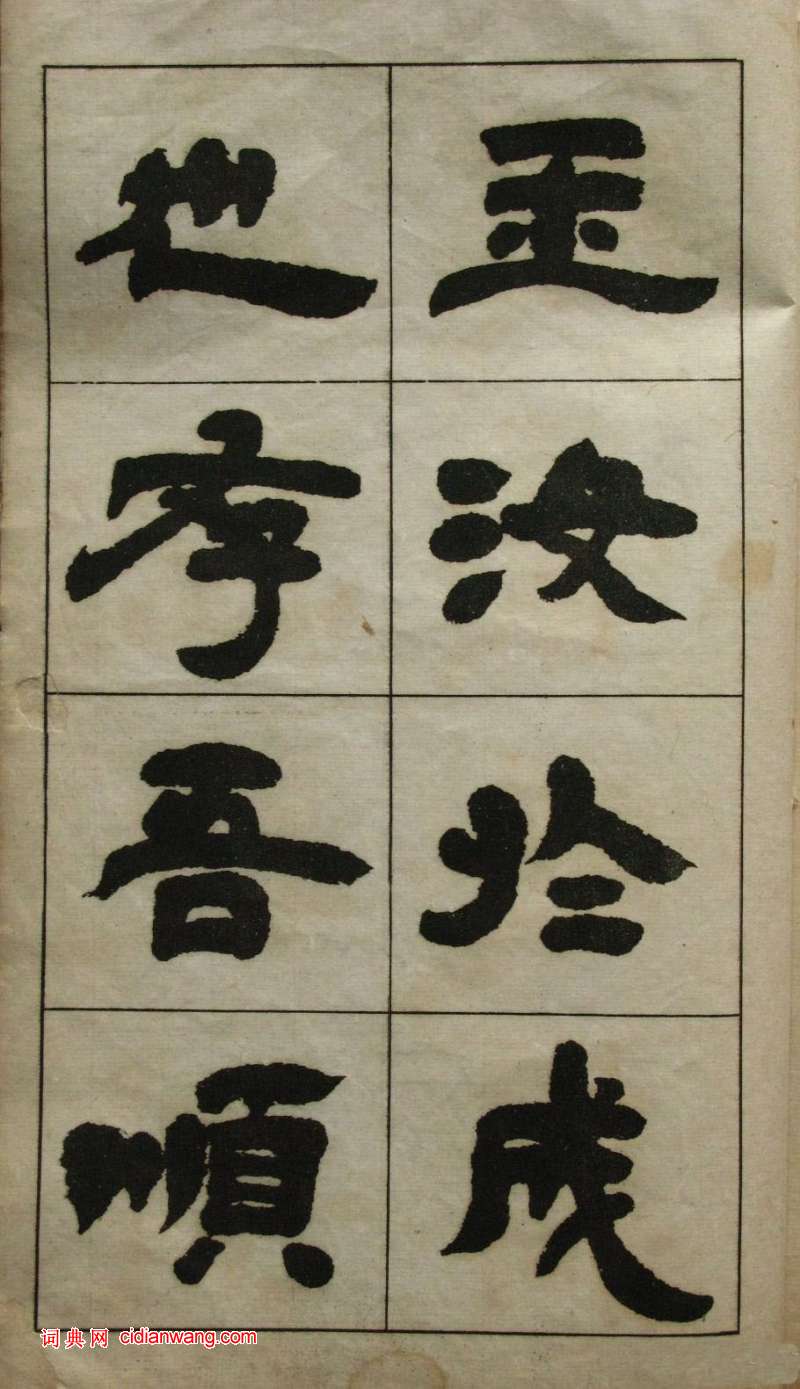 玉汝於成
也存吾順
词典网 cidianwang.com